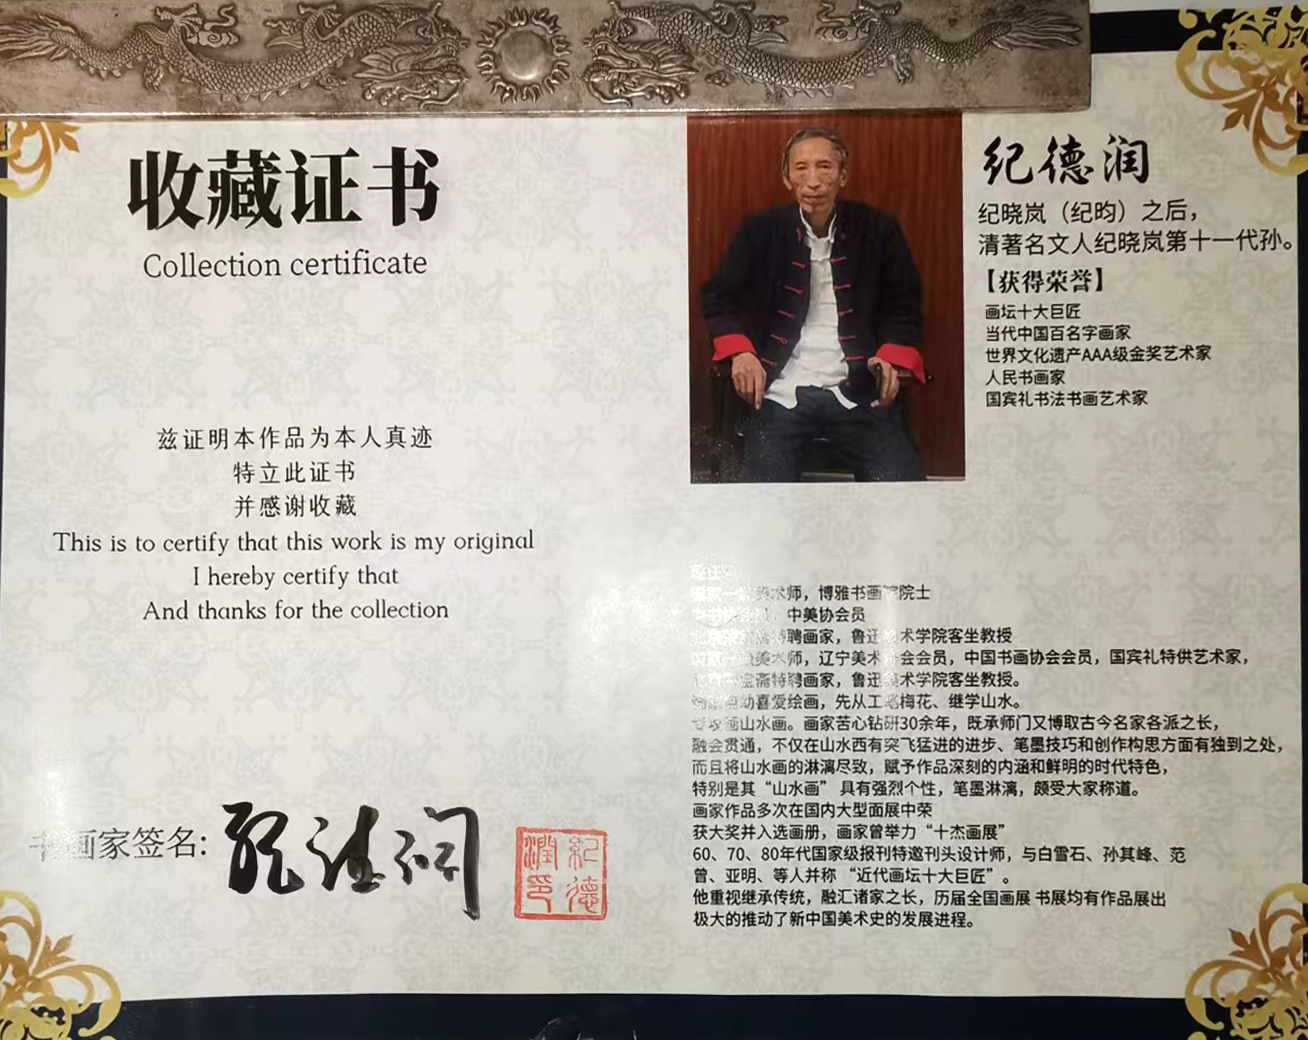 收藏证书
Collection certificate
兹证明本作品为本人真迹
特立此证书
并感谢收藏
This is to certify that this work is my original
I hereby certify that
And thanks for the collection
画家签名:
纪德润
紀德潤印
纪德润
纪晓岚（纪昀）之后，
清著名文人纪晓岚第十一代孙。
【获得荣誉】
画坛十大巨匠
当代中国百名字画家
世界文化遗产AAA级金奖艺术家
人民书画家
国宾礼书法书画艺术家
术师，博雅书画 院士
中美协会员
聘画家，鲁迅 术学院客坐教授
美术师，辽宁美术 会会员，中国书画协会会员，国宾礼特供艺术家，
斋特聘画家，鲁迅 术学院客坐教授。
幼喜爱绘画，先从工 梅花、继学山水。
山水画。画家苦心钻研30余年，既承师门又博取古今名家各派之长，
融会贯通，不仅在山水西有突飞猛进的进步、笔墨技巧和创作构思方面有独到之处，
而且将山水画的淋漓尽致，赋予作品深刻的内涵和鲜明的时代特色，
特别是其“山水画” 具有强烈个性，笔墨淋漓，颇受大家称道。
画家作品多次在国内大型面展中荣
获大奖并入选画册，画家曾举力“十杰画展”
60、70、80年代国家级报刊特邀刊头设计师，与白雪石、孙其峰、范
曾、亚明、等人并称 “近代画坛十大巨匠”。
他重视继承传统，融汇诸家之长，历届全国画展 书展均有作品展出
极大的推动了新中国美术史的发展进程。